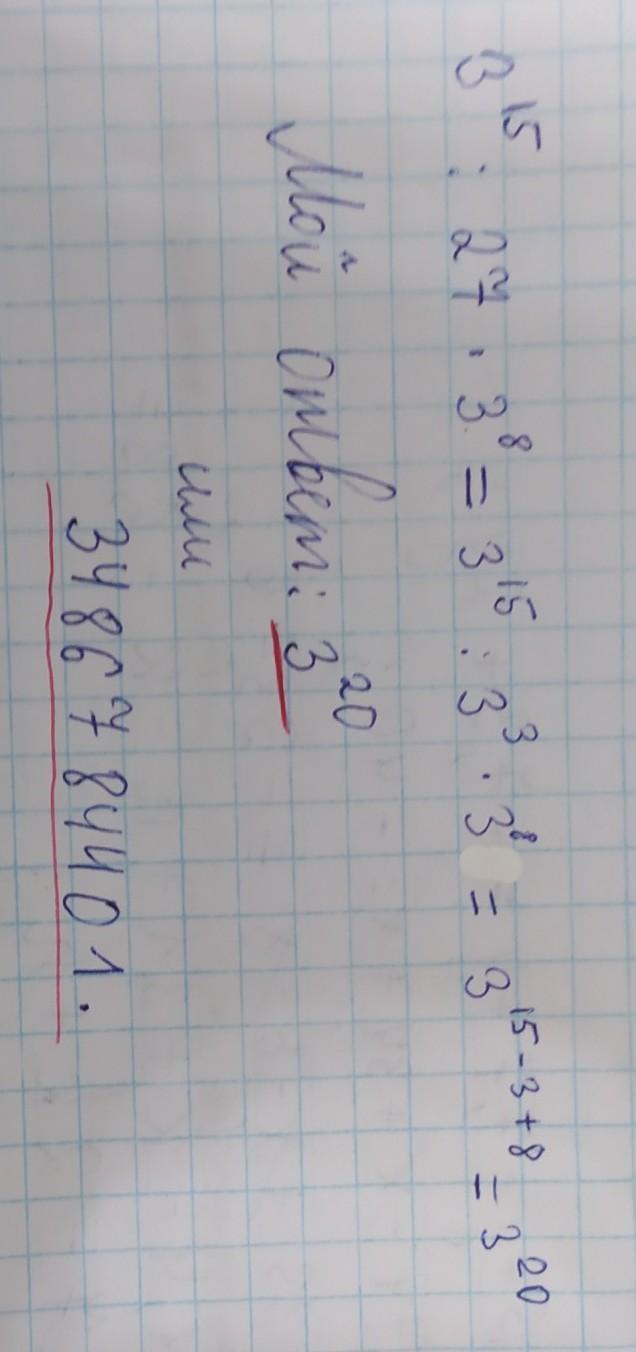 3¹⁵ : 27 · 3⁸ = 3¹⁵ : 3³ · 3⁸ = 3¹⁵⁻³⁺⁸ = 3²⁰
Мой ответ: 3²⁰
или
3486784401.